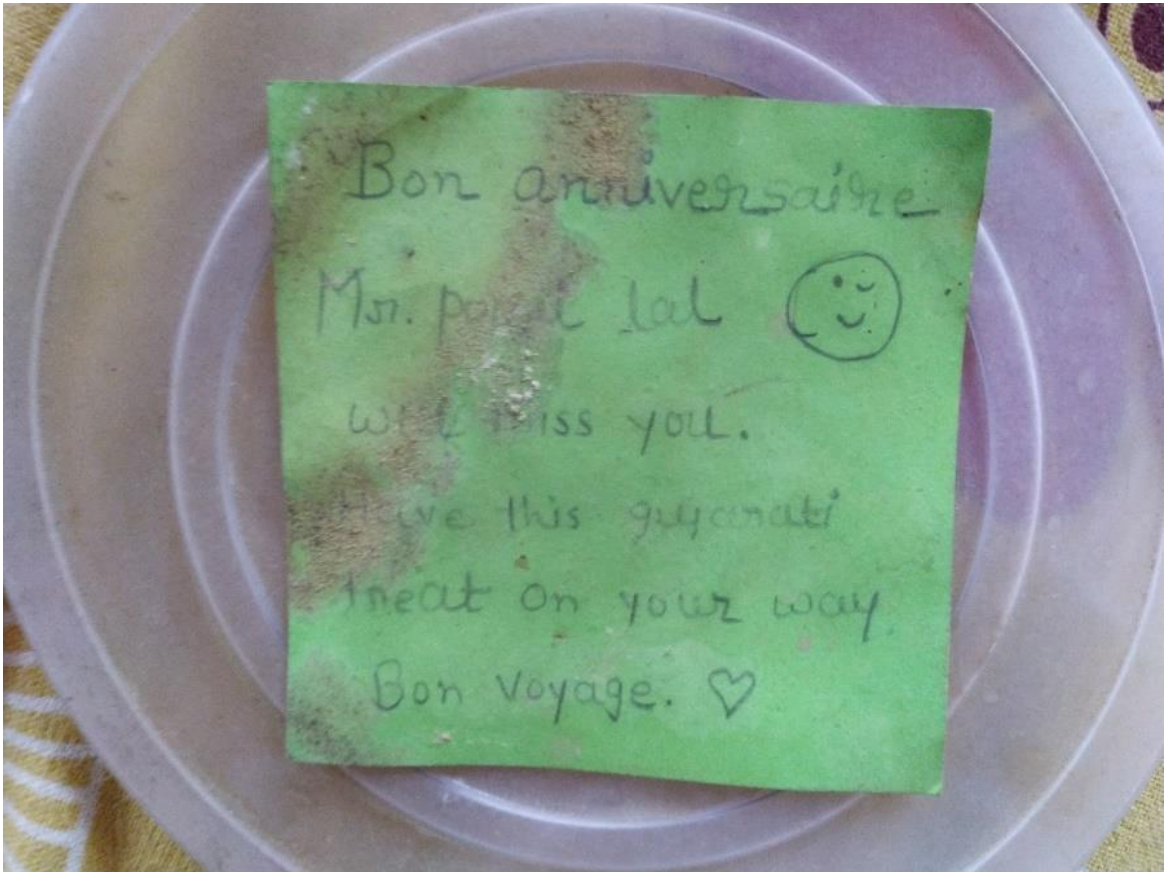 Bon anniversaire
Mr. lal
will miss you.
Have this gujarati
treat on your way
Bon Voyage. ♡